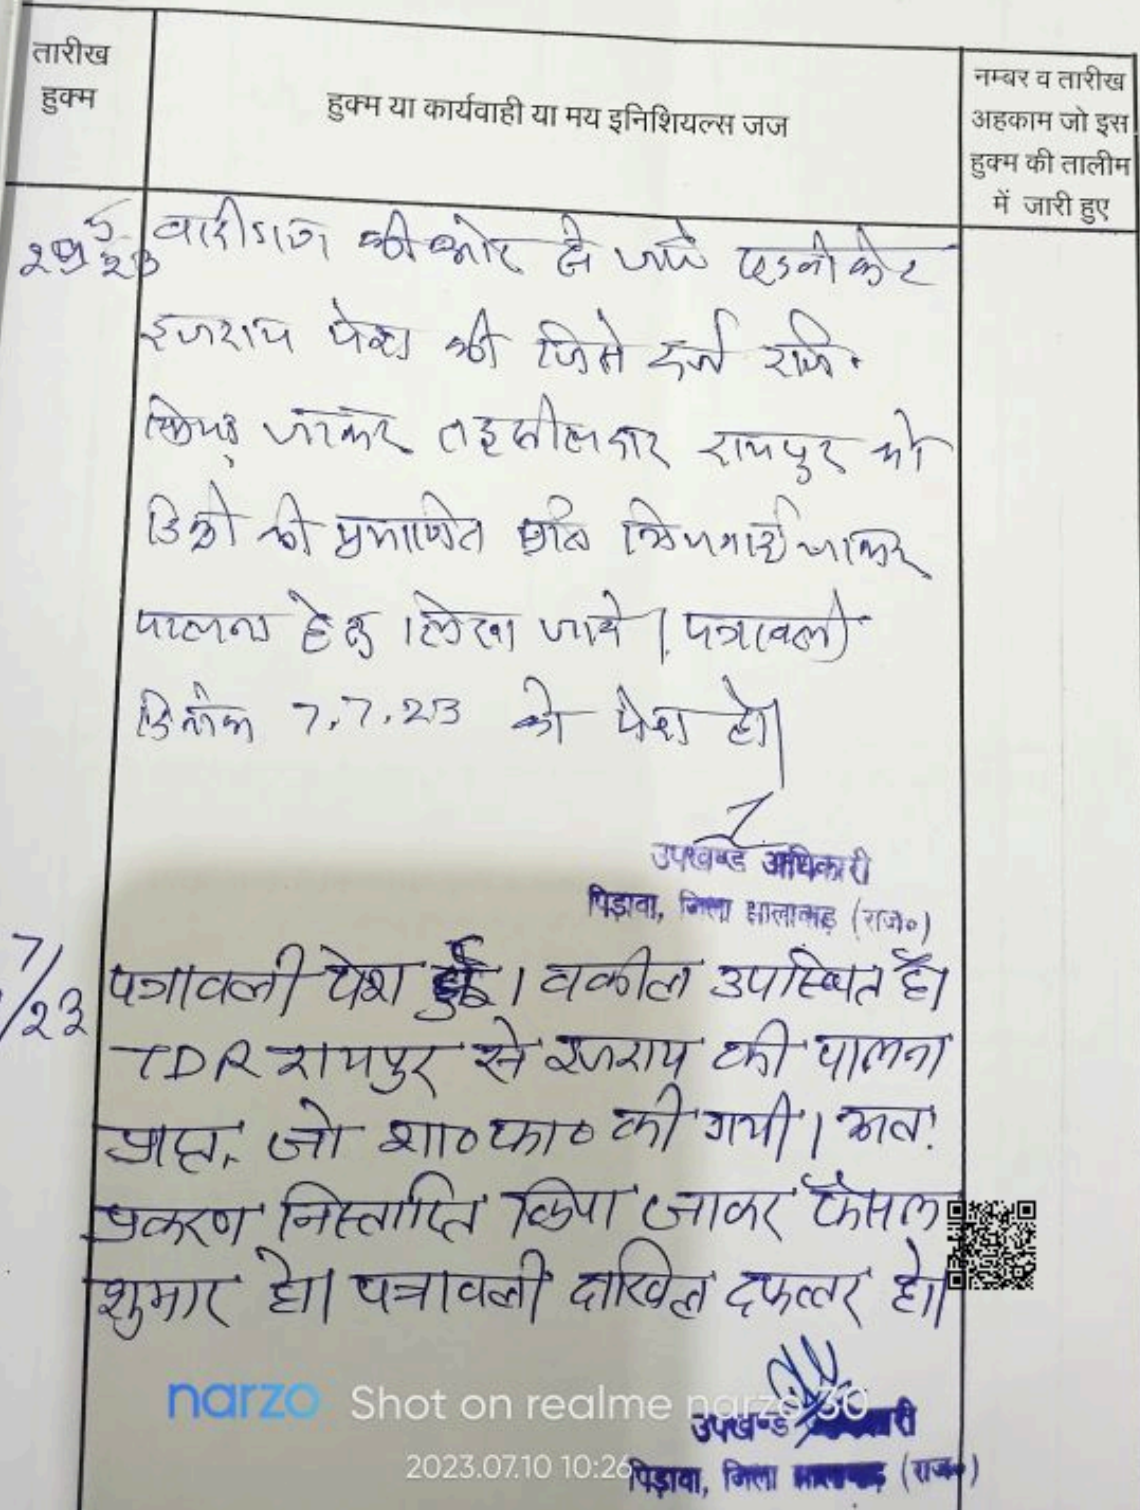 तारीख
हुक्म
हुक्म या कार्यवाही या मय इनिशियल्स जज
नम्बर व तारीख
अहकाम जो इस
हुक्म की तालीम
में जारी हुए
वादीगण की ओर से जर्ये एडवोकेट
इजराय पेश की जिसे दर्ज रजि.
किया जाकर तहसीलदार रायपुर को
डिक्री की प्रमाणित प्रति जाकर
पालना हेतु लिखा जाये। पत्रावली
दिनांक 7.7.23 को पेश हो।
उपखण्ड अधिकारी
पिड़ावा, जिला झालावाड़ (राज०)
7/
/23
पत्रावली पेश हुई। वकील उपस्थित है।
TDR रायपुर से इजराय की पालना
प्राप्त, जो शा०फा० की गयी। अतः
प्रकरण निस्तारित किया जाकर फैसल
शुमार हो। पत्रावली दाखिल दफ्तर हो।
narzo Shot on realme narzo 30
2023.07.10 10:26
उपखण्ड
पिड़ावा, जिला (राज०)